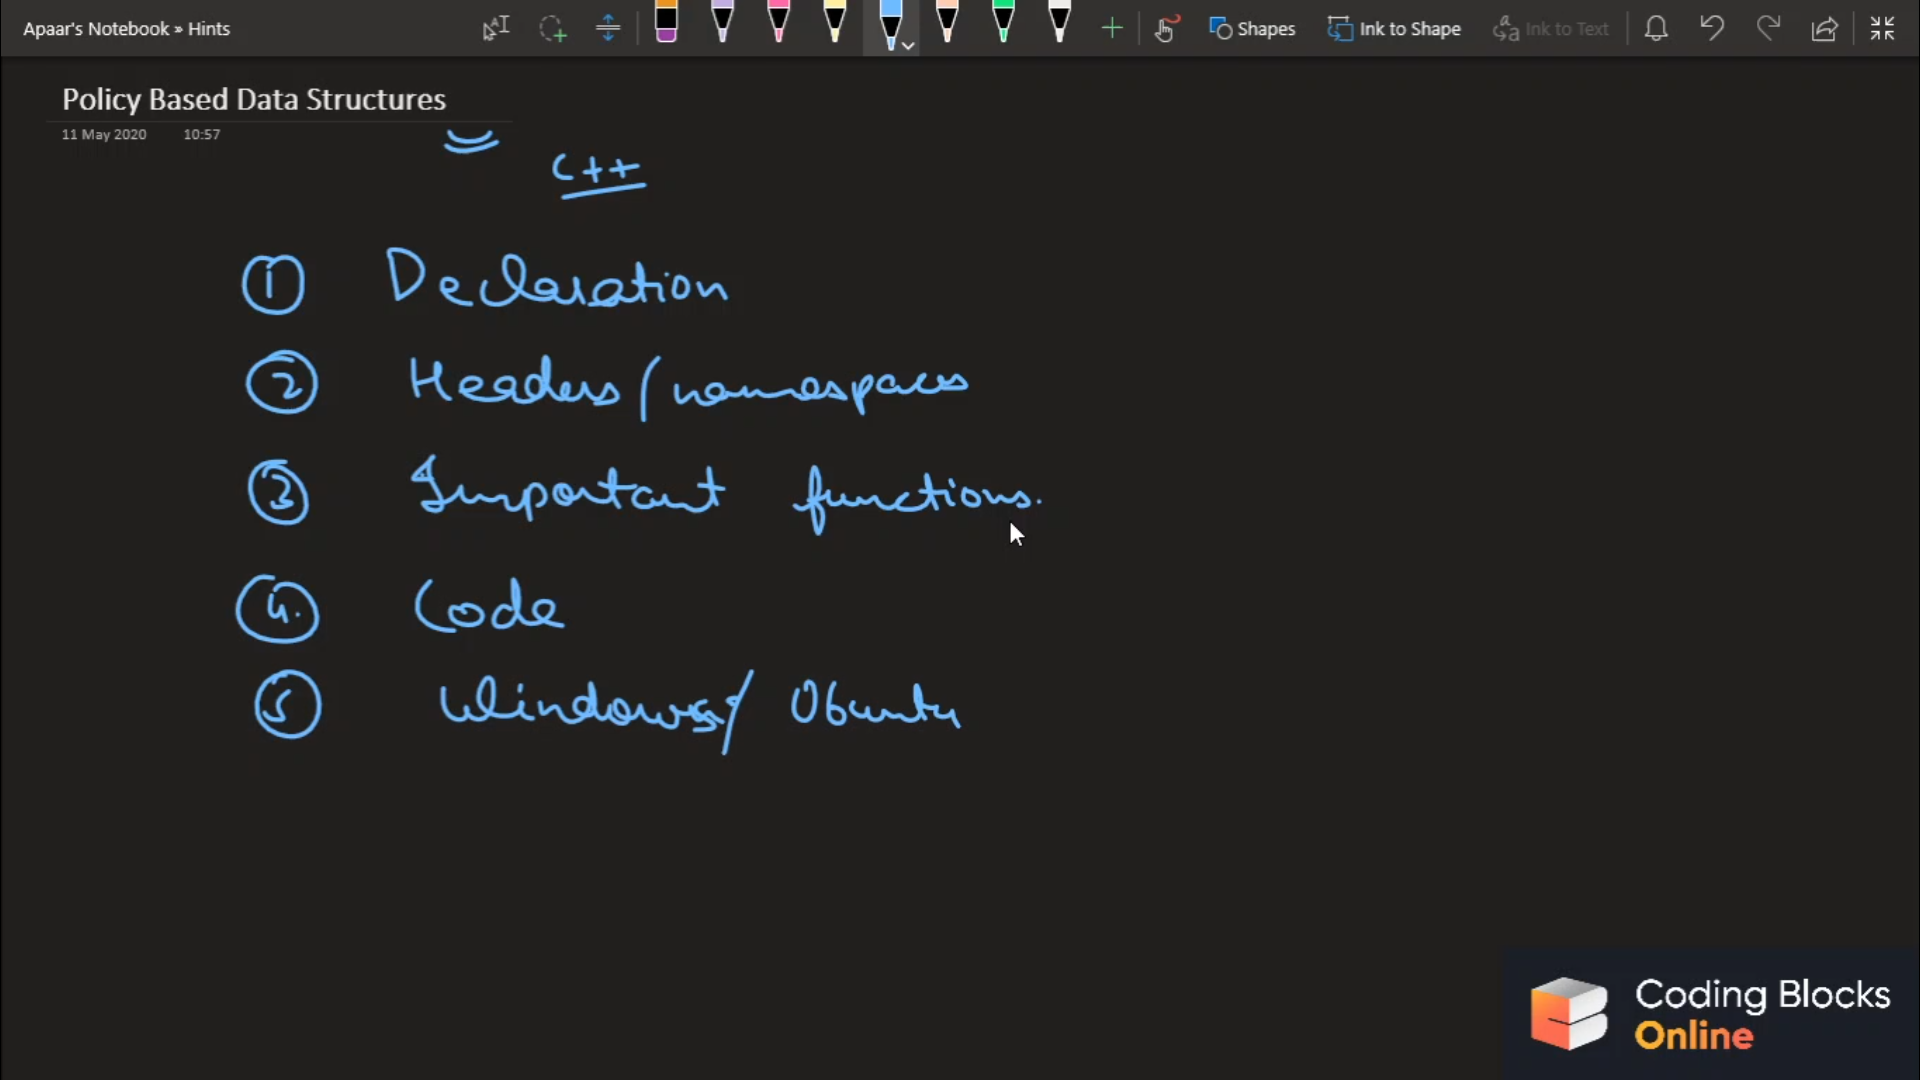 Apaar's Notebook » Hints
Shapes
Ink to Shape
Ink to Text
Policy Based Data Structures
11 May 2020 10:57
C++
1 Declaration
2 Headers/namespaces
3 Important functions.
4. Code
5 Windows/ Ubuntu
Coding Blocks
Online